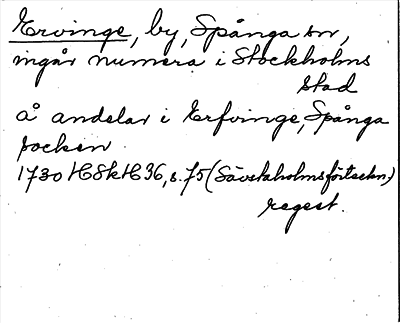 Ervinge, by, Spånga sn,
ingår numera i Stockholms
stad
å andelar i Erfvinge, Spånga
socken
1730 HSkH 36, s. 75 (Sävstaholmsförteckn.)
regest.